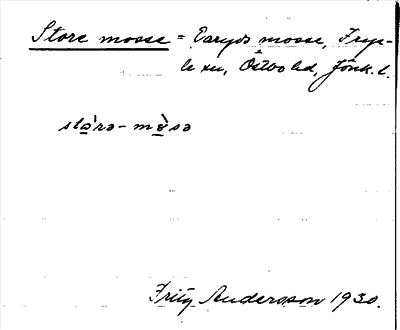 Store mosse = Eseryds mosse, Frye-
le sn, Östbo hd, Jönk. l.
stò̱rə-mò̱sə
Fritz Andersson 1930.